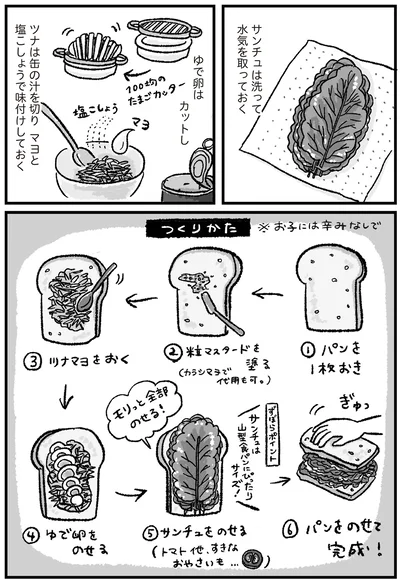 サンチュは洗って
水気を取っておく
ゆで卵は
カットし
100均の
たまごカッター
ツナは缶の汁を切り マヨと
塩こしょうで味付けしておく
塩こしょう
マヨ
つくりかた
※お子には辛みなしで
①パンを
1枚おき
②粒マスタードを
塗る
(カラシマヨで
代用も可。)
③ツナマヨをおく
④ゆで卵を
のせる
モリっと全部
のせる!
⑤サンチュをのせる
(トマト他、すきな
おやさいも…
ずぼらポイント
サンチュは
山型食パンにぴったり
サイズ!
ぎゅっ
⑥パンをのせて
完成!